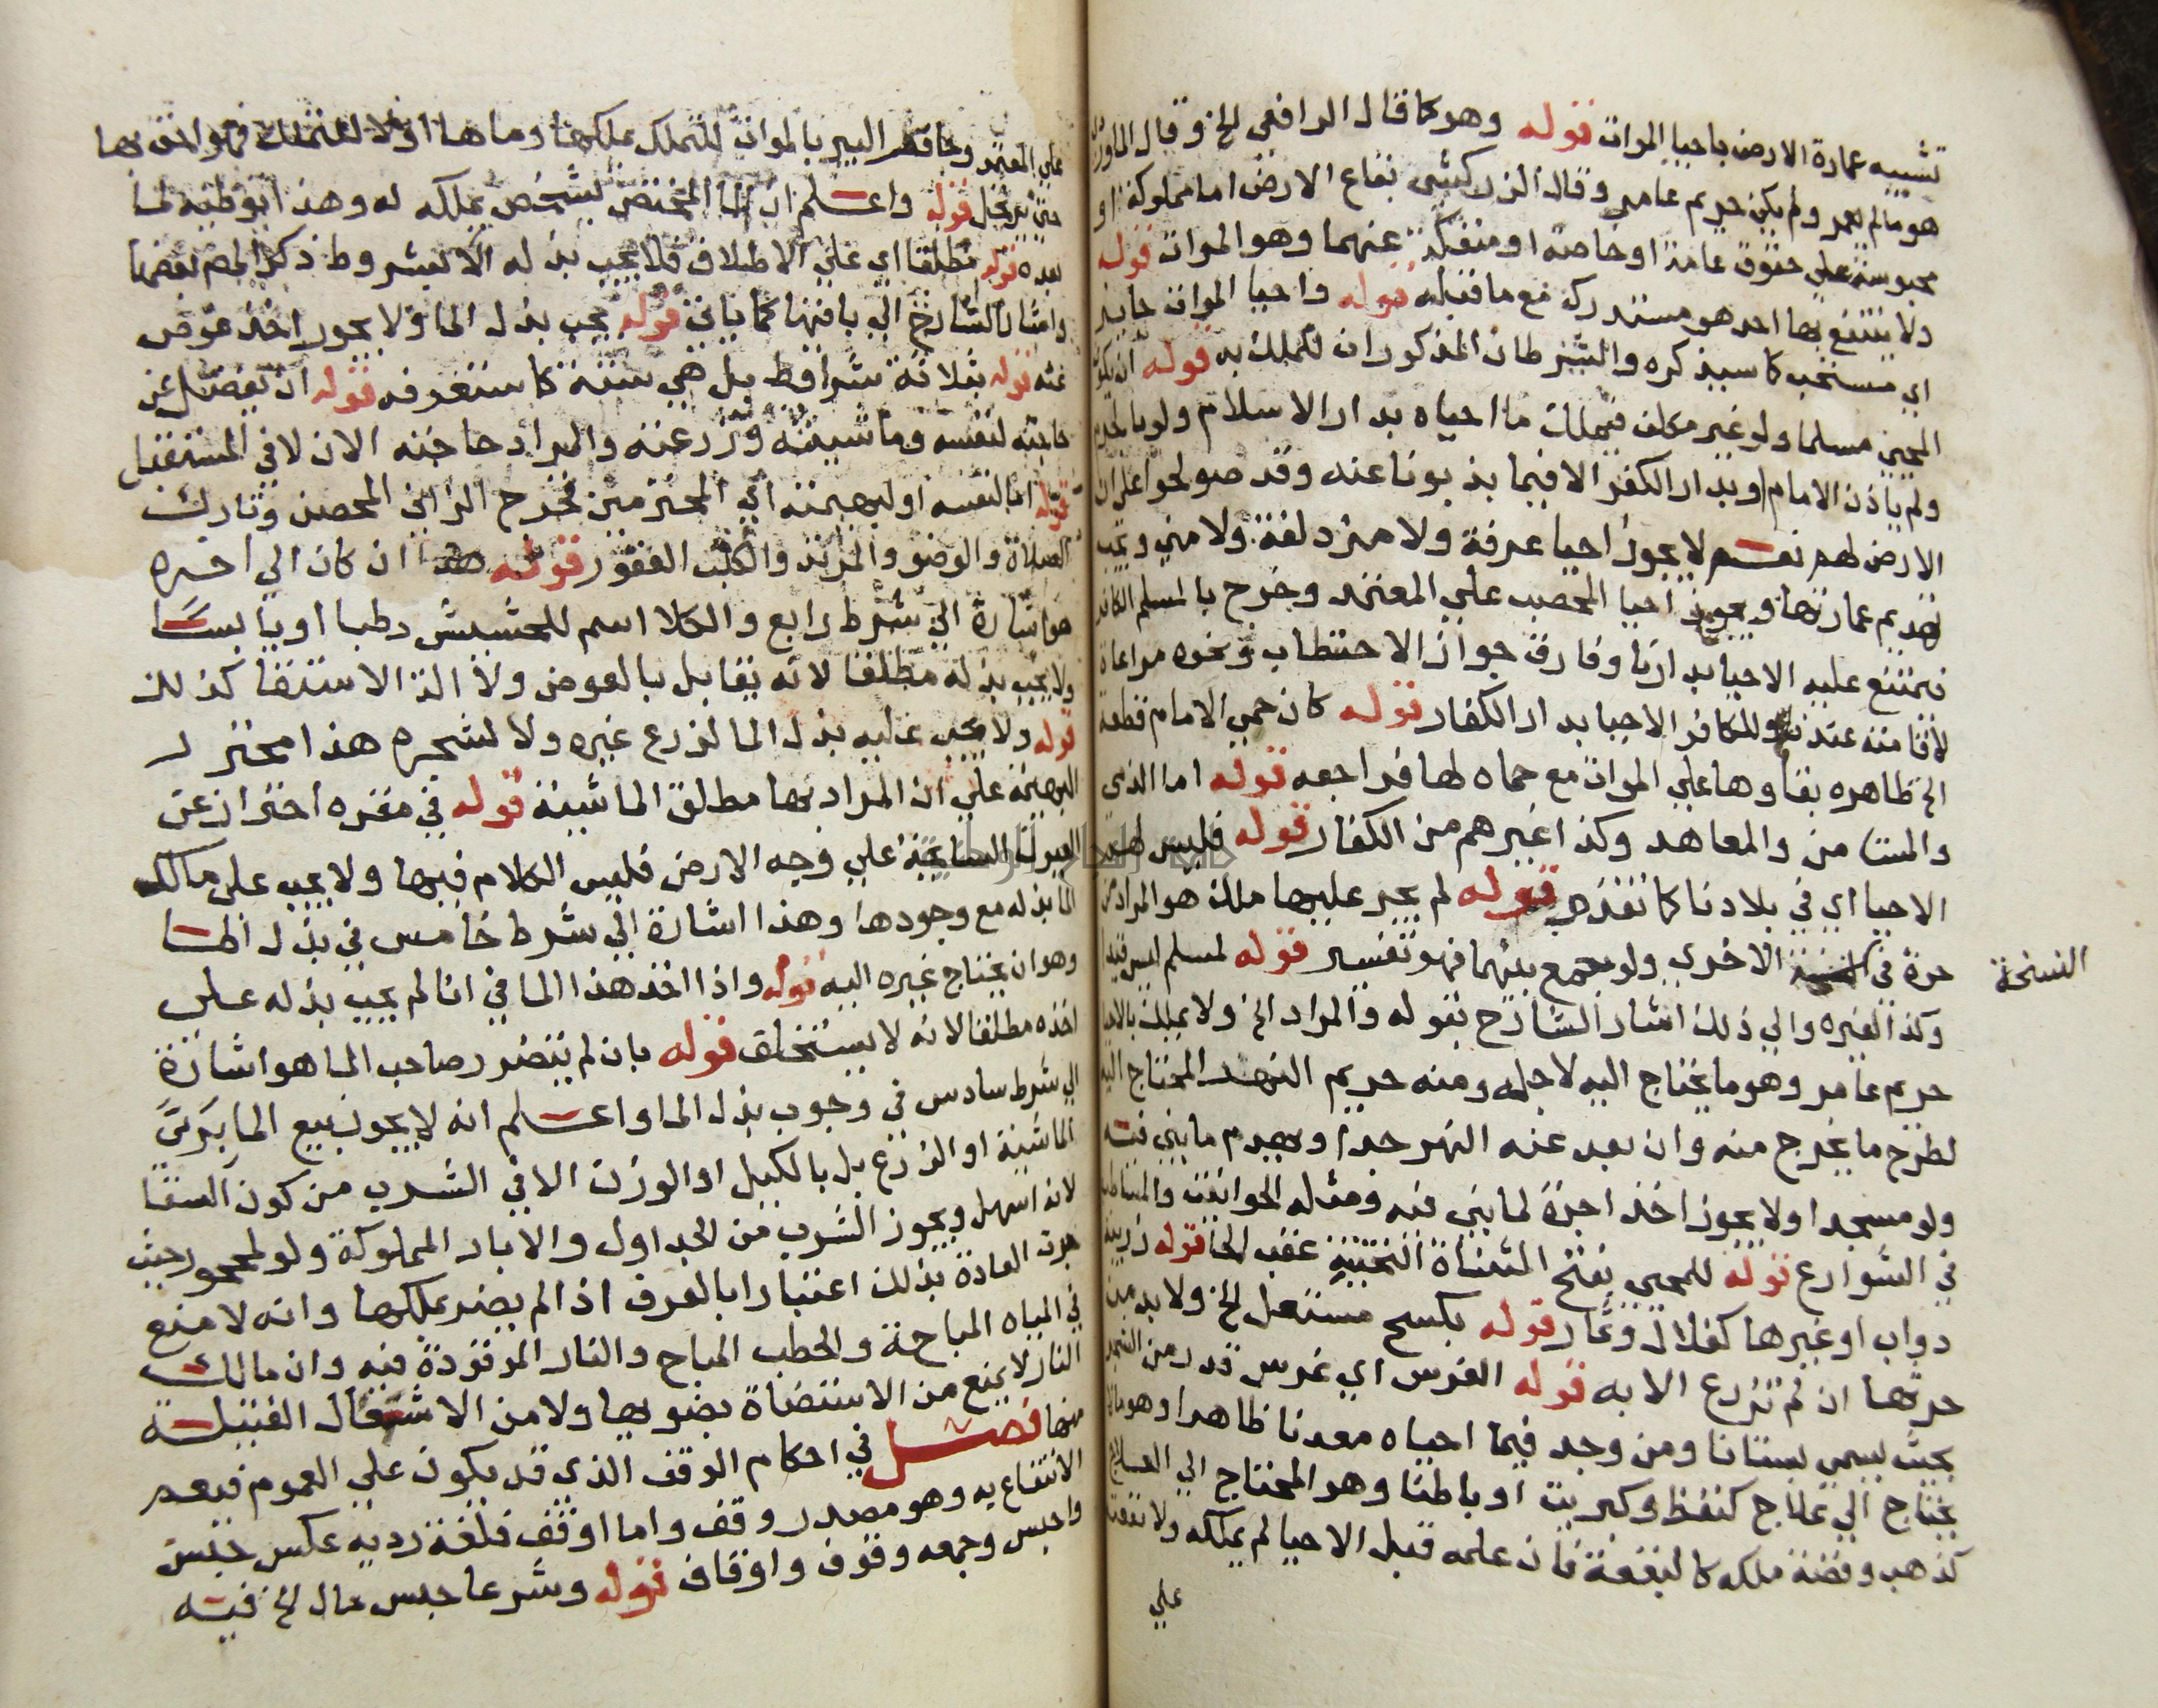 تشبيه عمارة الارض باحيا الموات قوله وهو كما قال الرافعي الخ وقال الماوردي
هو ما لم يعمر ولم يكن حريم عامر وقال الزركشي بقاع الارض اما مملوكة او
محبوسة على حقوق عامة او خاصة او منفكة عنهما وهو الموات قوله
ولا ينتفع بها احد هو مستدرك مع ما قبله قوله واحيا الموات جايز
اي مستحب كما سيذكره والشرطان المذكوران للملك به قوله ان يكون
المحيي مسلما ولو غير مكلف فيملك ما احياه بدار الاسلام ولو بالحرم
ولم ياذن الامام او بدار الكفر الا فيما يذبونا عنه وقد صولحوا على ان
الارض لهم نعم لا يجوز احيا عرفة ولا مزدلفة ولا منى ويجب
هدم عمارتها ويجوز احيا المحصب على المعتمد وخرج بالمسلم الكافر
فيمتنع عليه الاحيا بدارنا وفارق جواز الاحتطاب ونحوه مراعاة
لاقامته عندنا وللكافر الاحيا بدار الكفار قوله كان حمى الامام قطعة
الخ ظاهره بقاوها على الموات مع حماه لها فراجعه قوله اما الذمي
والمستامن والمعاهد وكذا غيرهم من الكفار قوله فليس لهم
الاحيا اي في بلادنا كما تقدم قوله لم يجر عليها ملك هو المراد من
حرة في النسخة الاخرى ولو جمع بينهما فهو تفسير قوله لمسلم ليس قيدا
النسخة
وكذا لغيره والى ذلك اشار الشارح بقوله والمراد الخ ولا يملك بالاحيا
حريم عامر وهو ما يحتاج اليه لاجله ومنه حريم النهر المحتاج اليه
لطرح ما يخرج منه وان بعد عنه النهر جدا ويهدم ما بني فيه
ولو مسجدا ولا يجوز اخذ اجرة لما بني فيه ومثله الحوانيت والمساطب
في الشوارع قوله للمحيي بفتح المثناة التحتية عقب الحا قوله زريبة
دواب او غيرها كغلال وثمار قوله بكسح مستعل الخ ولا بد من
حرثها ان لم تزرع الا به قوله الغرس اي غرس قدر من الشجر
بحيث يسمى بستانا ومن وجد فيما احياه معدنا ظاهرا وهو ما لا
يحتاج الى علاج كنفط وكبريت او باطنا وهو المحتاج الى العلاج
كذهب وفضة ملكه كالبقعة فان علمه قبل الاحيا لم يملكه ولا بقعته
على
على المعتمد وحافر البير بالموات للتملك يملكها وماها او لا للتملك فهو احق بها
حتى يرتحل قوله واعلم ان الما المختص بشخص يملكه له وهذا توطية لما
بعده قوله مطلقا اي على الاطلاق فلا يجب بذله الا بشروط ذكر المص بعضها
واشار الشارح الى باقيها كما ياتي قوله يجب بذل الما ولا يجوز اخذ عوض
عنه قوله بثلاثة شرايط بل هي ستة كما ستعرفه قوله ان يفضل عن
حاجته لنفسه وماشيته وزرعته والمراد حاجته الان لا في المستقبل
قوله اما لنفسه او لبهيمته اي المحترمين فخرج الزاني المحصن وتارك
الصلاة والوضو والمرتد والكلب العقور قوله هذا ان كان الى اخره
هو اشارة الى شرط رابع والكلا اسم للحشيش رطبا او يابسا
ولا يجب بذله مطلقا لانه يقابل بالعوض ولا الة الاستقا كذلك
قوله ولا يجب عليه بذل الما لزرع غيره ولا لشجره هذا محترز
البهيمة على ان المراد بها مطلق الماشية قوله في مقره احتراز عن
العيون السايحة على وجه الارض فليس الكلام فيها ولا يجب على مالك
الما بذله مع وجودها وهذا اشارة الى شرط خامس في بذل الما
وهو ان يحتاج غيره اليه قوله واذا اخذ هذا الما في انا لم يجب بذله على
اخذه مطلقا لانه لا يستخلف قوله بان لم يتضرر صاحب الما هو اشارة
الى شرط سادس في وجوب بذل الما واعلم انه لا يجوز بيع الما بري
الماشية او الزرع بل بالكيل او الوزن الا في الشرب من كون السقا
لانه اسهل ويجوز الشرب من الجداول والابار المملوكة ولو لمحجور حيث
جرت العادة بذلك اعتبارا بالعرف اذا لم يضر بملكها وانه لا منع
في المياه المباحة والحطب المباح والنار الموقودة فيه وان مالك
النار لا يمنع من الاستضاة بضوها ولا من الاشتعال الفتيلة
منها فصل في احكام الوقف الذي قد يكون على العموم فيعم
الانتفاع به وهو مصدر وقف واما اوقف فلغة ردية عكس حبس
واحبس وجمعه وقوف واوقاف قوله وشرعا حبس مال الخ فيه